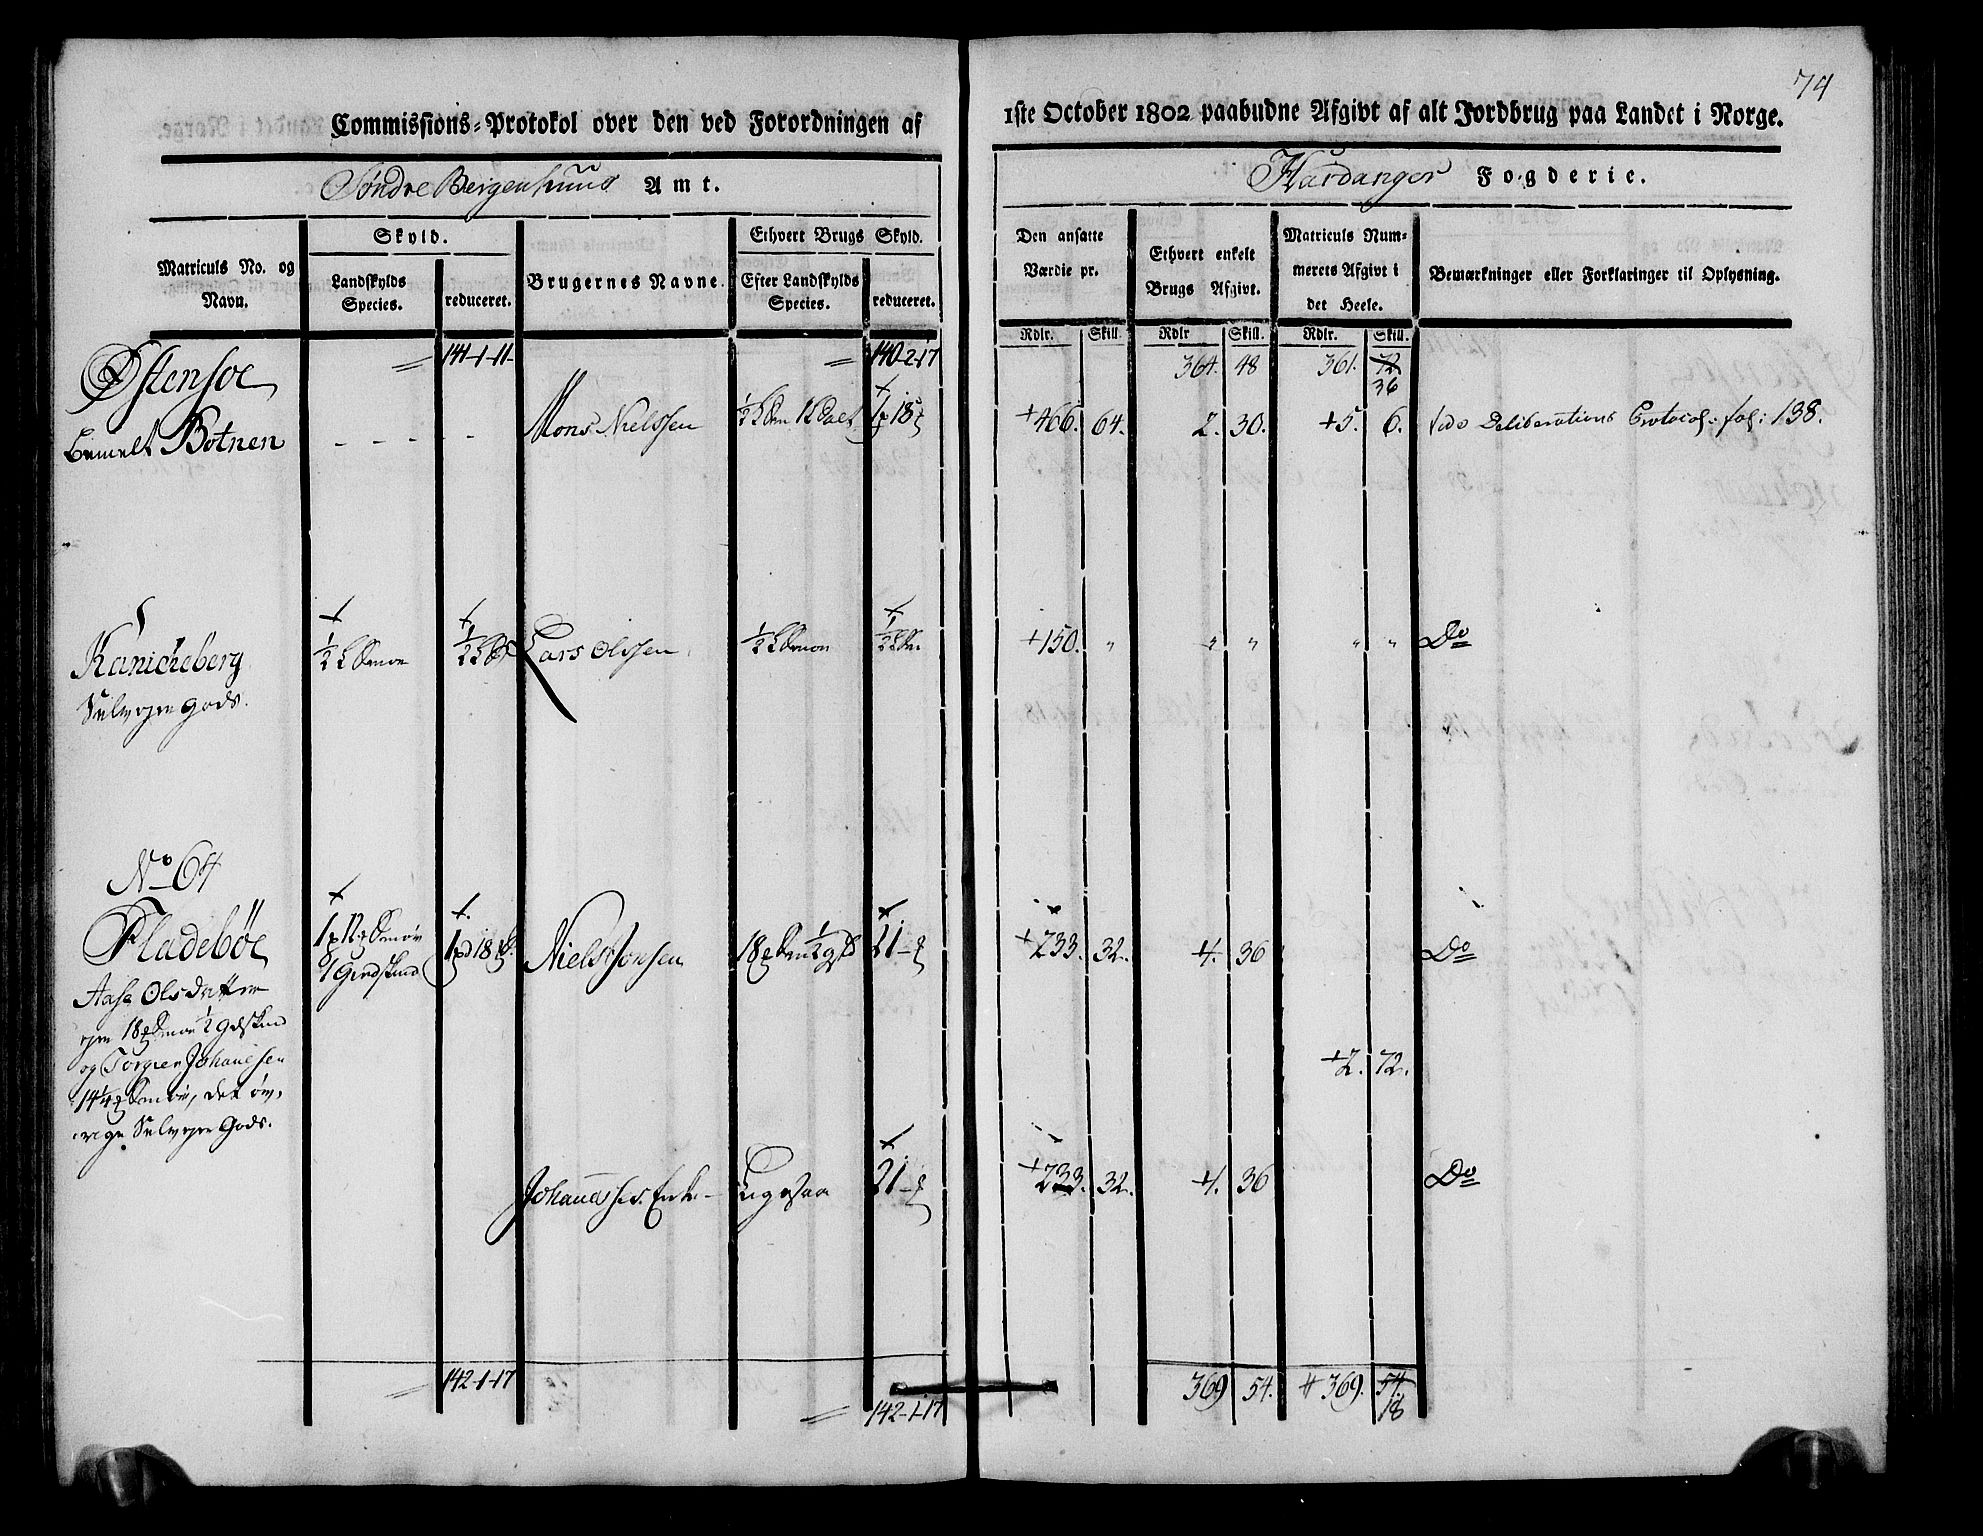 74
Commissions-Protokol over den ved Forordningen af 1ste October 1802 paabudne Afgivt af alt Jordbrug paa Landet i Norge.
Søndre Bergenhuus Amt. Hardanger Fogderie.
Matriculs No. og Navn.
Skyld.
Landskylds Species.
reduceret.
Brugernes Navne.
Ethvert Brugs Skyld.
Efter Landskylds Species.
reduceret.
Den ansatte Værdie pr.
Rdlr. Skill.
Ethvert enkelt Brugs Afgivt.
Rdlr Skill.
Matriculs Nummerets Afgivt i det Heele.
Rdlr. Skill.
Bemærkninger eller Forklaringer til Oplysning.
Østensøe 141-1-11 140-2-17 364. 48 361. 72
36
Botnen Mons Nielssen +466. 64. 2. 30. +5. 6. vide Deliberations Protocol: fol: 138.
Kanickeberg Lars Olssen +150. " " " " " Do
Selveyer Gods.
No 64
Fladebøe Niels Jonsen 21 +233. 32. 4. 36 Do
Aase Olsdatter
og Torgier Johanesen
+2. 72.
rige Selveyer Gods.
Johanes Enke Ligesaa 21 +233. 32. 4. 36 Do
142-1-17 142-1-17 369 54. # 369. 54.
18